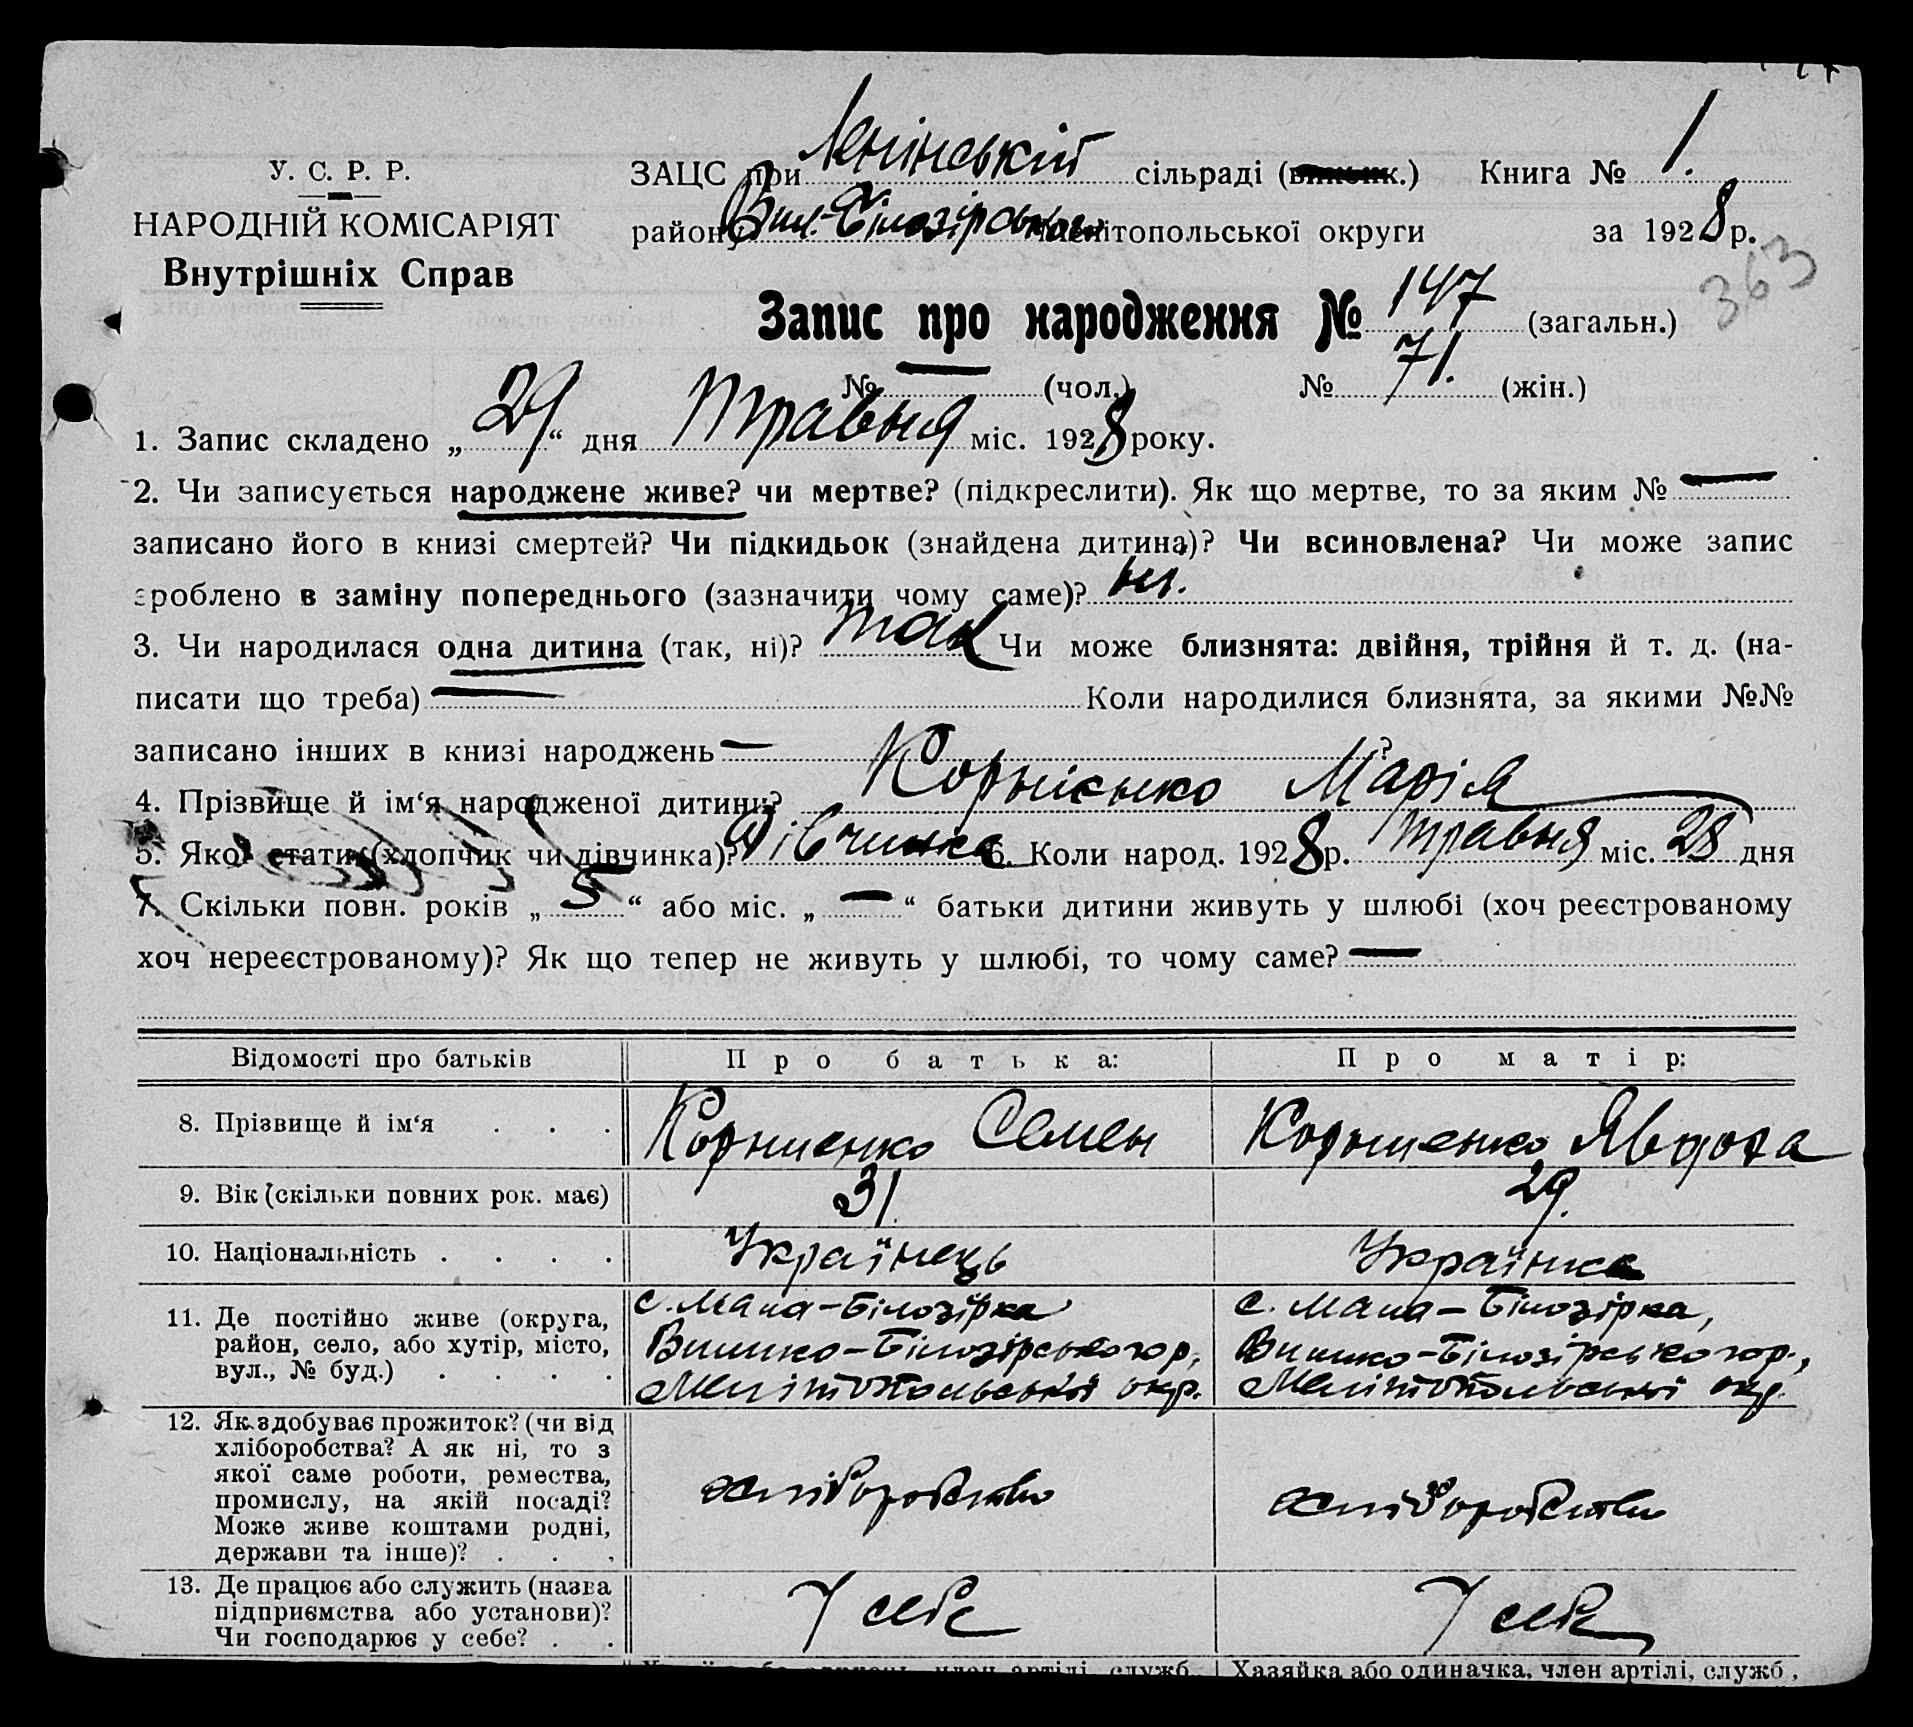 У. С. Р. Р.
НАРОДНІЙ КОМІСАРІЯТ
Внутрішніх Справ
ЗАЦС при Ленінській сільраді Книга № 1.
району Вил.-Білозірського Мелітопольської округи за 1928 р.
363
Запис про народження № 147 (загальн.)
№ — (чол.) № 71. (жін.)
1. Запис складено „29“ дня Травня міс. 1928 року.
2. Чи записується народжене живе? чи мертве? (підкреслити). Як що мертве, то за яким № —
записано його в книзі смертей? Чи підкидьок (знайдена дитина)? Чи всиновлена? Чи може запис
зроблено в заміну попереднього (зазначити чому саме)? Ні.
3. Чи народилася одна дитина (так, ні)? так Чи може близнята: двійня, трійня й т. д. (на-
писати що треба) — Коли народилися близнята, за якими №№
записано інших в книзі народжень — ?
4. Прізвище й ім‘я народженої дитини? Корнієнко Марія
5. Якої стати (хлопчик чи дівчинка)? Дівчинка 6. Коли народ. 1928 р. Травня міс. 28 дня
7. Скільки повн. років „5“ або міс. „—“ батьки дитини живуть у шлюбі (хоч реєстрованому
хоч нереєстрованому)? Як що тепер не живуть у шлюбі, то чому саме? —
Відомості про батьків Про батька: Про матір:
8. Прізвище й ім‘я . . . Корниенко Семен Корниенко Явдоха
9. Вік (скільки повних рок. має) 31. 29.
10. Національність . . . . Українець Українка
11. Де постійно живе (округа, с. Мала-Білозірка с. Мала-Білозірка,
район, село, або хутір, місто, Вилико-Білозірського р, Вилико-Білозірського р.,
вул., № буд.) . . . . Мелітопольської окр. Мелітопольської окр.
12. Як здобуває прожиток? (чи від
хліборобства? А як ні, то з
якої саме роботи, ремества,
промислу, на якій посаді? хліборобство хліборобство
Може живе коштами родні,
держави та інше)? . . .
13. Де працює або служить (назва
підприємства або установи)? У себе У себе
Чи господарює у себе? . .
Хазяйка або одиначка, член артілі, служб.,